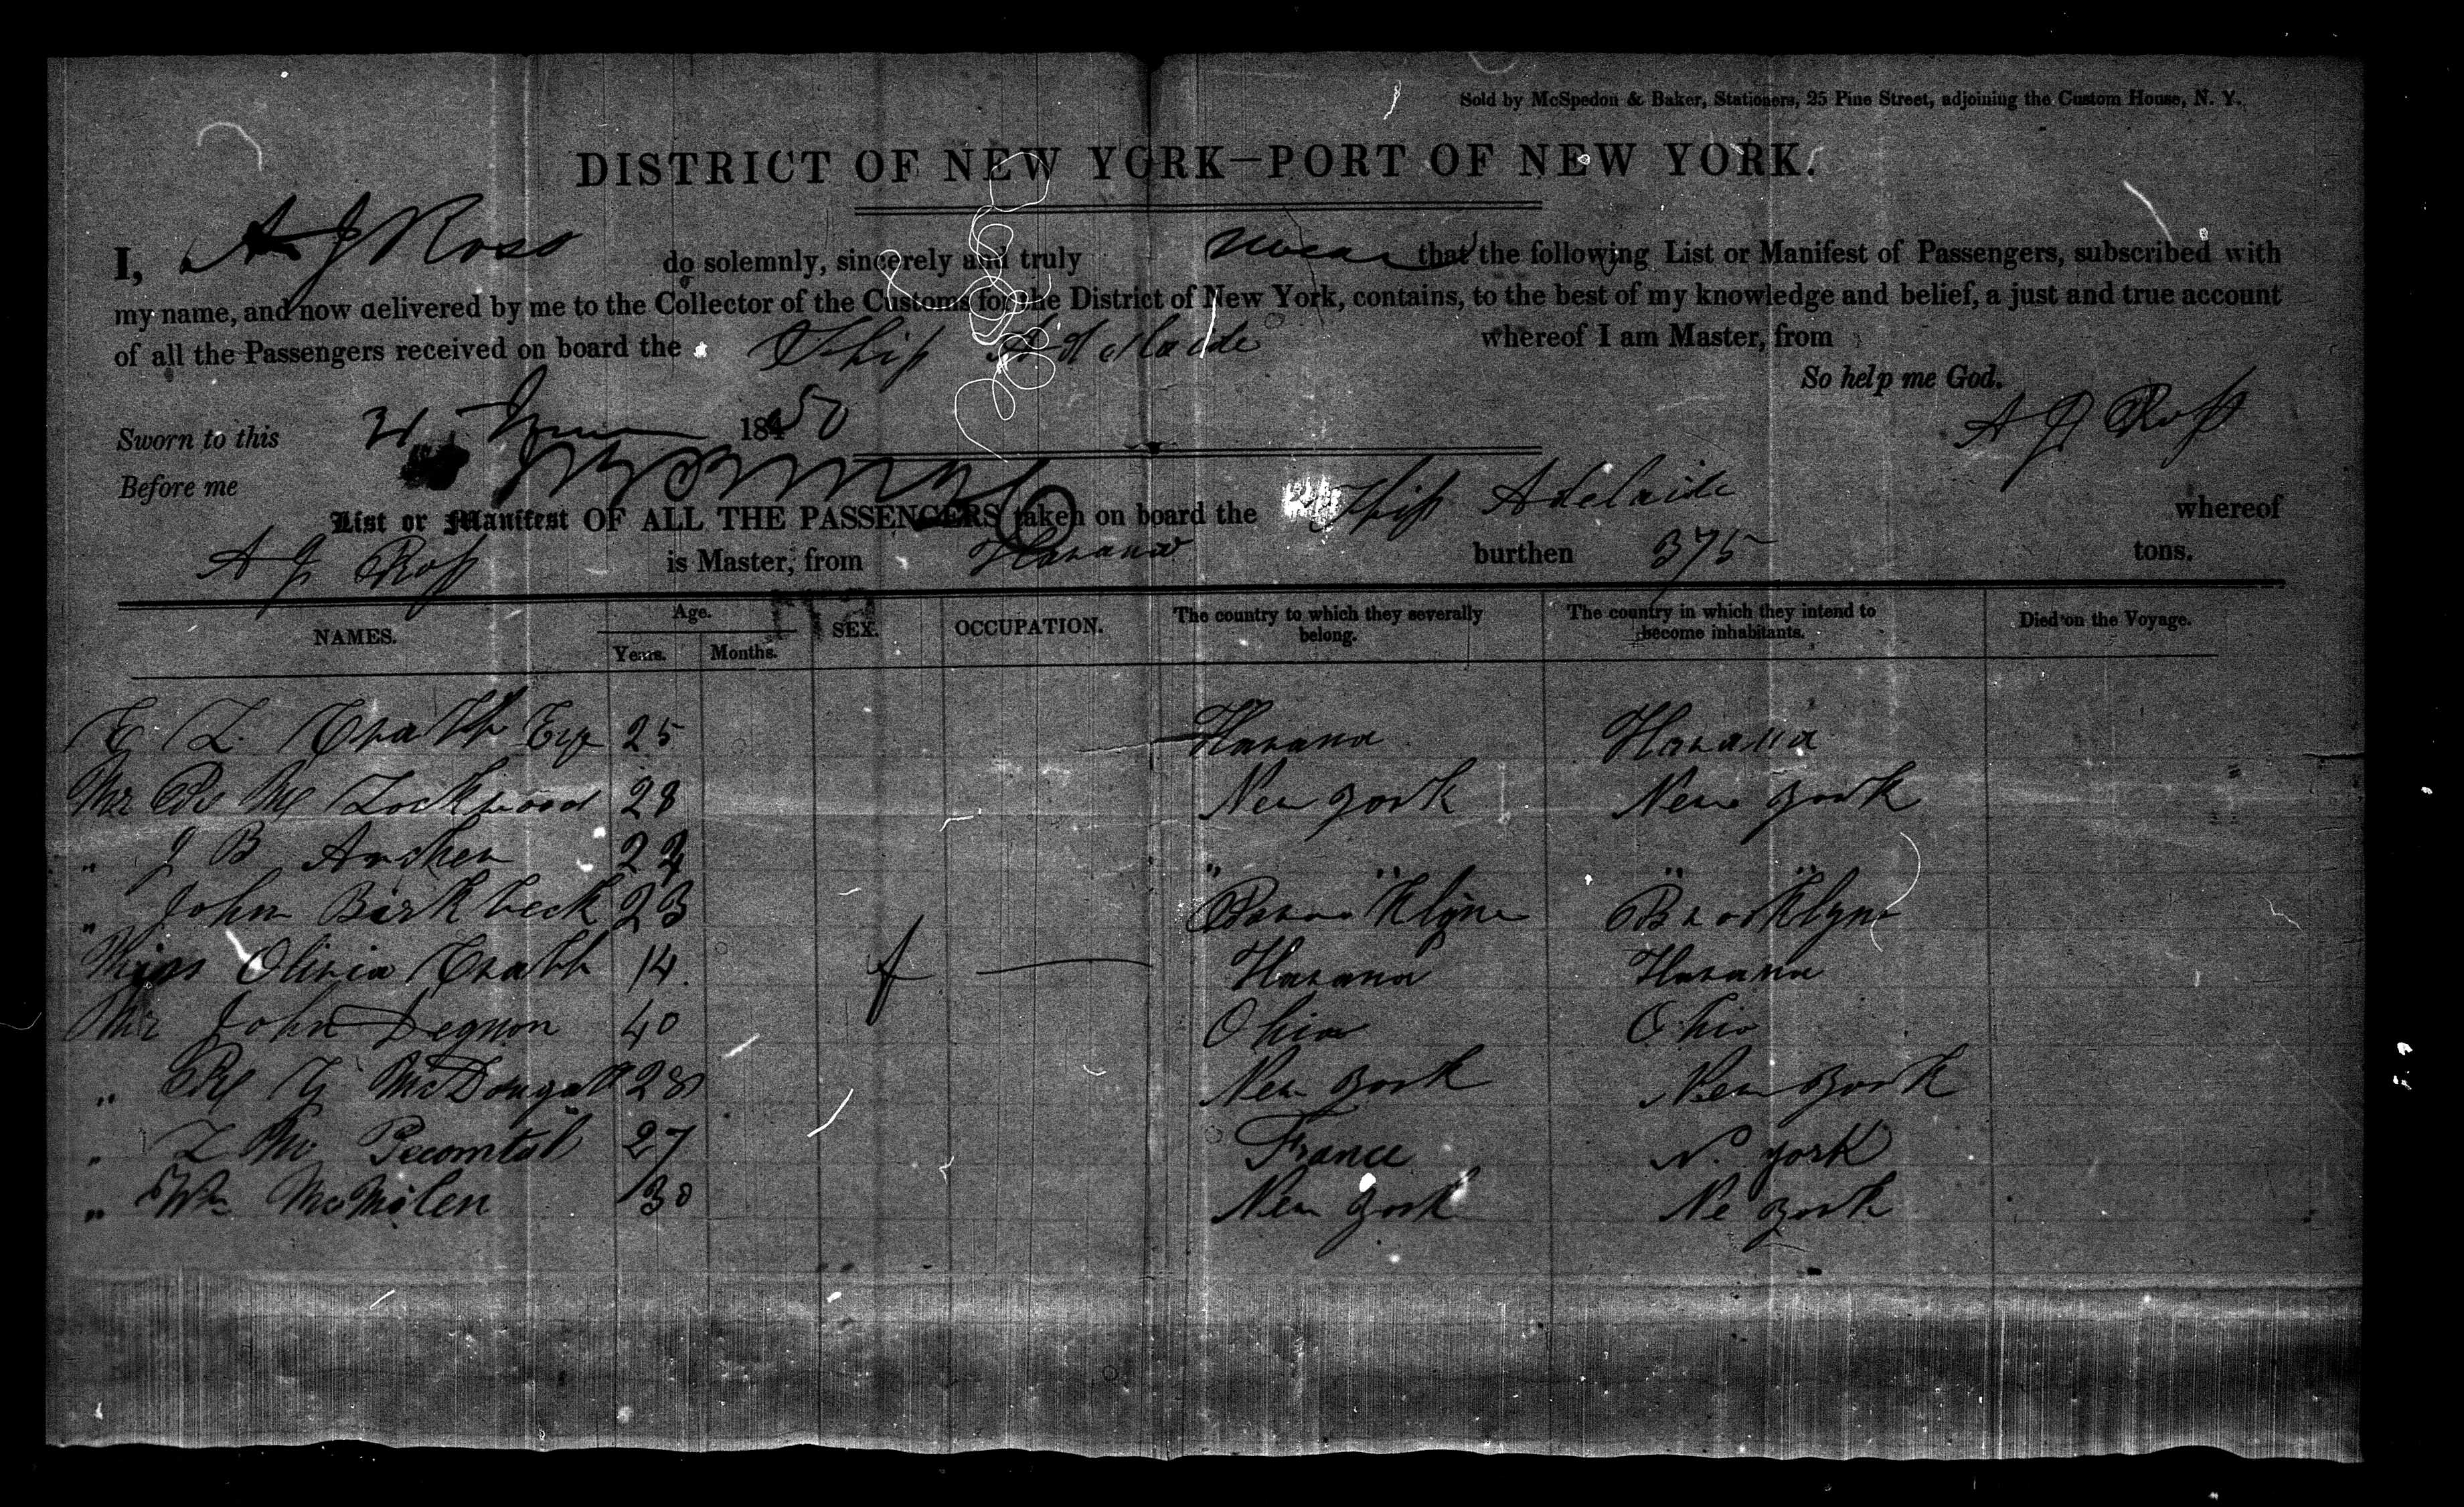 Sold by McSpedon & Baker, Stationers, 25 Pine Street, adjoining the Custom House, N. Y.
DISTRICT OF NEW YORK—PORT OF NEW YORK.
I, A J Ross do solemnly, sincerely and truly swear that the following List or Manifest of Passengers, subscribed with
my name, and now delivered by me to the Collector of the Customs for the District of New York, contains, to the best of my knowledge and belief, a just and true account
of all the Passengers received on board the Ship Adelaide whereof I am Master, from
So help me God.
Sworn to this 21 June 18450 A J Ross
Before me
List or Manifest OF ALL THE PASSENGERS taken on board the Ship Adelaide whereof
A J Ross is Master, from Havana burthen 375 tons.
NAMES. Age. Years. Months. SEX. OCCUPATION. The country to which they severally belong. The country in which they intend to become inhabitants. Died on the Voyage.
E L Crabb Esq 25 Havana Havana
Mr Lockwood 28 New York New York
" J B Archer 24 " " " "
" John Birkbeck 23 Brooklyn Brooklyn
Miss Olivia Crabb 14 f — Havana Havana
Mr John Degnon 40 Ohio Ohio
" McDougall 28 New York New York
" L Pecomtal 27 France N. York
" Wm McMilen 30 New York Ne York